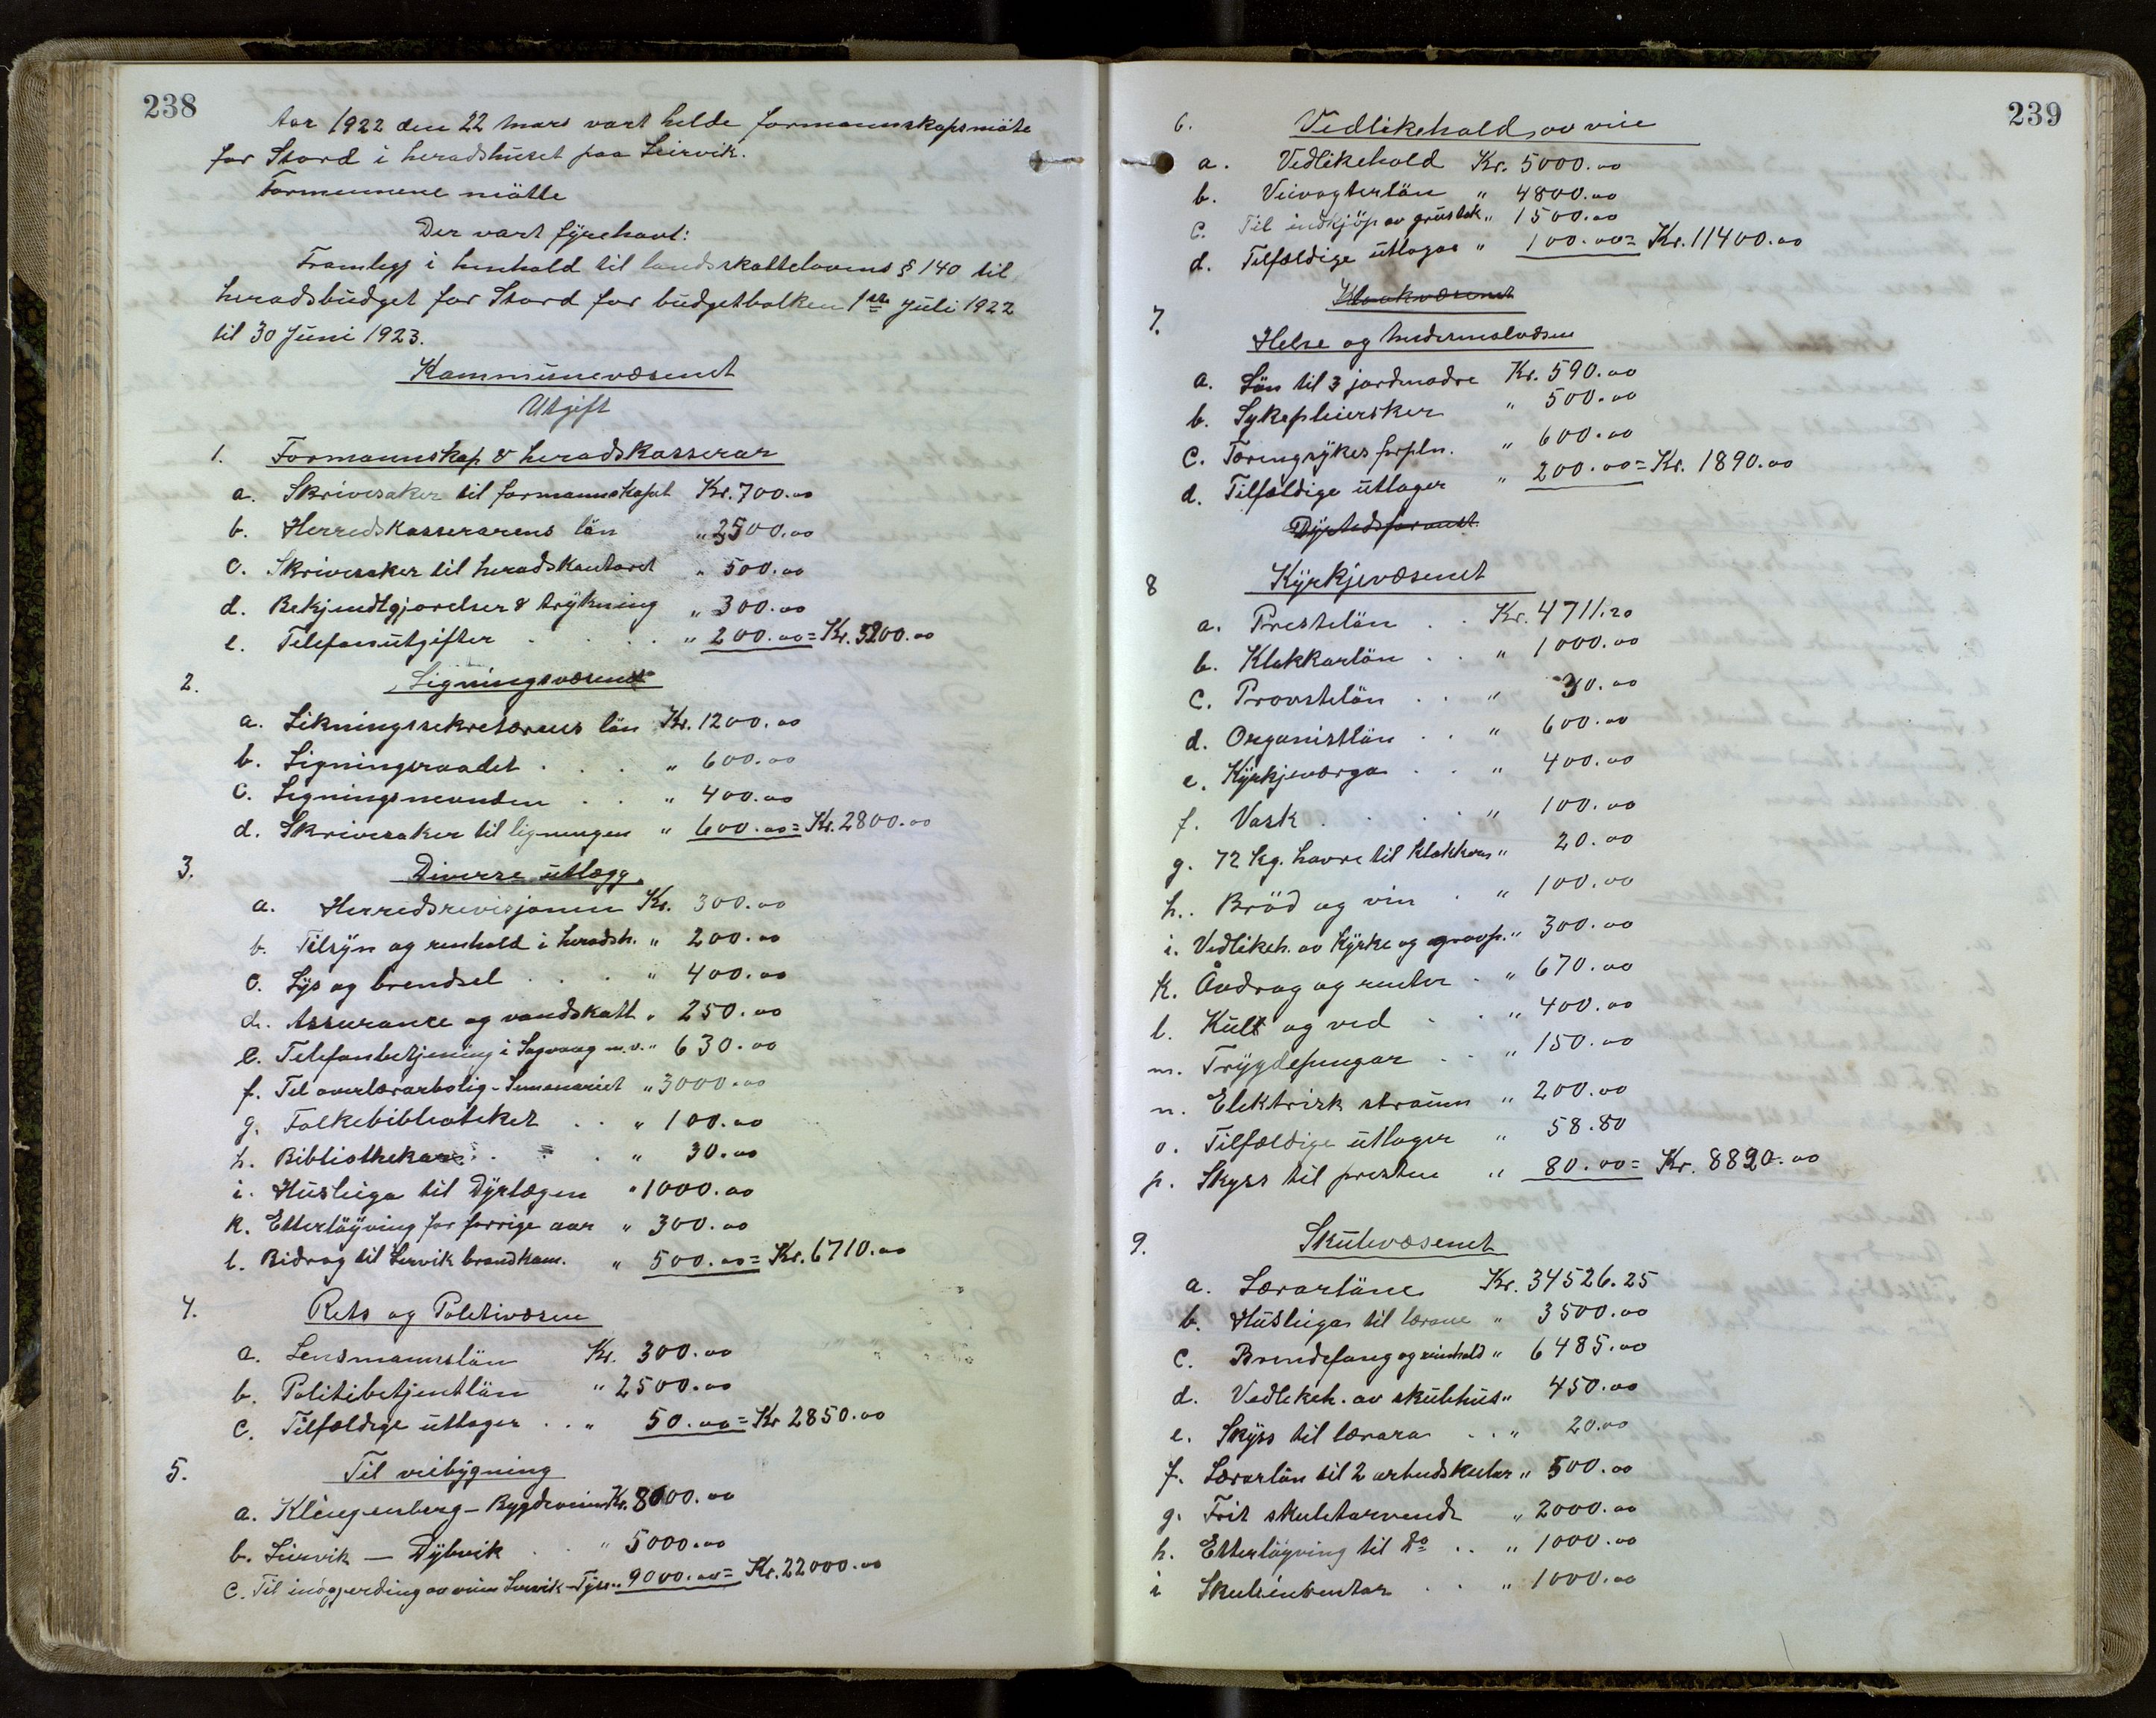 238
Aar 1922 den 22 mars vart helde formannskapsmöte
for Stord i heradshuset paa Leirvik.
Formennene mötte
Der vart fyrehavt:
Framlegg i henhold til landsskattelovens § 140 til
heradsbudget for Stord for budgetbolken 1ste Juli 1922
til 30 Juni 1923.
Kommunevæsenet
Utgift
1. Formannskap & heradskasserar
a. Skrivesaker til formannskapet Kr. 700.00
b. Herredskasserarens lön " 3500.00
c. Skrivesaker til heradskontoret " 500.00
d. Bekjendtgjorelser & trykning " 300.00
e. Telefonutgifter . . . " 200.00 = Kr. 5200.00
2. Ligningsvæsenet
a. Likningssekretærens lön Kr. 1200.00
b. Ligningsraadet . . . " 600.00
c. Ligningsnevnden . . " 400.00
d. Skrivesaker til ligningen " 600.00 = Kr. 2800.00
3. Diverse utlegg
a. Herredsrevisjonen Kr. 300.00
b. Tilsyn og renhold i heradsh. " 200.00
c. Lys og brendsel . . . " 400.00
d. Assurance og vandskatt " 250.00
e. Telefonbetjening i Sagvaag m.v. " 630.00
f. Til overlærarbolig - Semenariet " 3000.00
g. Folkebiblioteket . . " 100.00
h. Bibliothekar . . . " 30.00
i. Husleiga til Dyrlægen " 1000.00
k. Etterlöyving for forrige aar " 300.00
l. Bidrag til Lervik brandkom. " 500.00 = Kr. 6710.00
4. Rets og Politivæsen
a. Lensmannslön Kr. 300.00
b. Politibetjentlön " 2500.00
c. Tilfældige utlager . . " 50.00 = Kr 2850.00
5. Til veibygning
a. Klingenberg - Bygdeveien Kr. 8000.00
b. Leirvik — Dybvik . . " 5000.00
c. Til indgjerding av veien Lervik - Tyse " 9000.00 = Kr. 22000.00
239
6. Vedlikehold av veie
a. Vedlikehold Kr. 5000.00
b. Veivogterlön " 4800.00
c. Til indkjöp av grustak " 1500.00
d. Tilfældige utlagor " 100.00 = Kr. 11400.00
7.
Helse og Medesinalvæsen
a. Lön til 3 jordmodre Kr. 590.00
b. Sykepleiersker " 500.00
c. Tæringsykes forpln. " 600.00
d. Tilfældige utlager " 200.00 = Kr. 1890.00
Dyrtidsforanst.
8 Kyrkjevæsenet
a. Prestelön . . Kr. 4711.20
b. Klokkarlön . . " 1000.00
c. Provstelön . . " 30.00
d. Organistlön . . " 600.00
e. Kyrkjeverga . . " 400.00
f. Vask . . . . " 100.00
g. 72 kg. havre til klokkeren " 20.00
h. Bröd og vin . " 100.00
i. Vedlikeh. av Kyrke og gravp. " 300.00
k. Åvdrag og renter . " 670.00
l. Kull og ved . . " 400.00
m. Trygdepengar . . " 150.00
n. Elektrisk straum " 200.00
o. Tilfældige utlager " 58.80
p. Skyss til presten " 80.00 = Kr. 8820.00
9. Skulevæsenet
a. Lærarlöne Kr. 34526.25
b. Husleiga til lærane " 3500.00
c. Brendefang og reinhald " 6485.00
d. Vedlikeh. av skulehus " 450.00
e. Skyss til lærara . . " 20.00
f. Lærarlön til 2 arbeidskular " 500.00
g. Frit skuletarvende " 2000.00
h. Etterlöyving til Do . . " 1000.00
i Skuleinventar . . " 1000.00